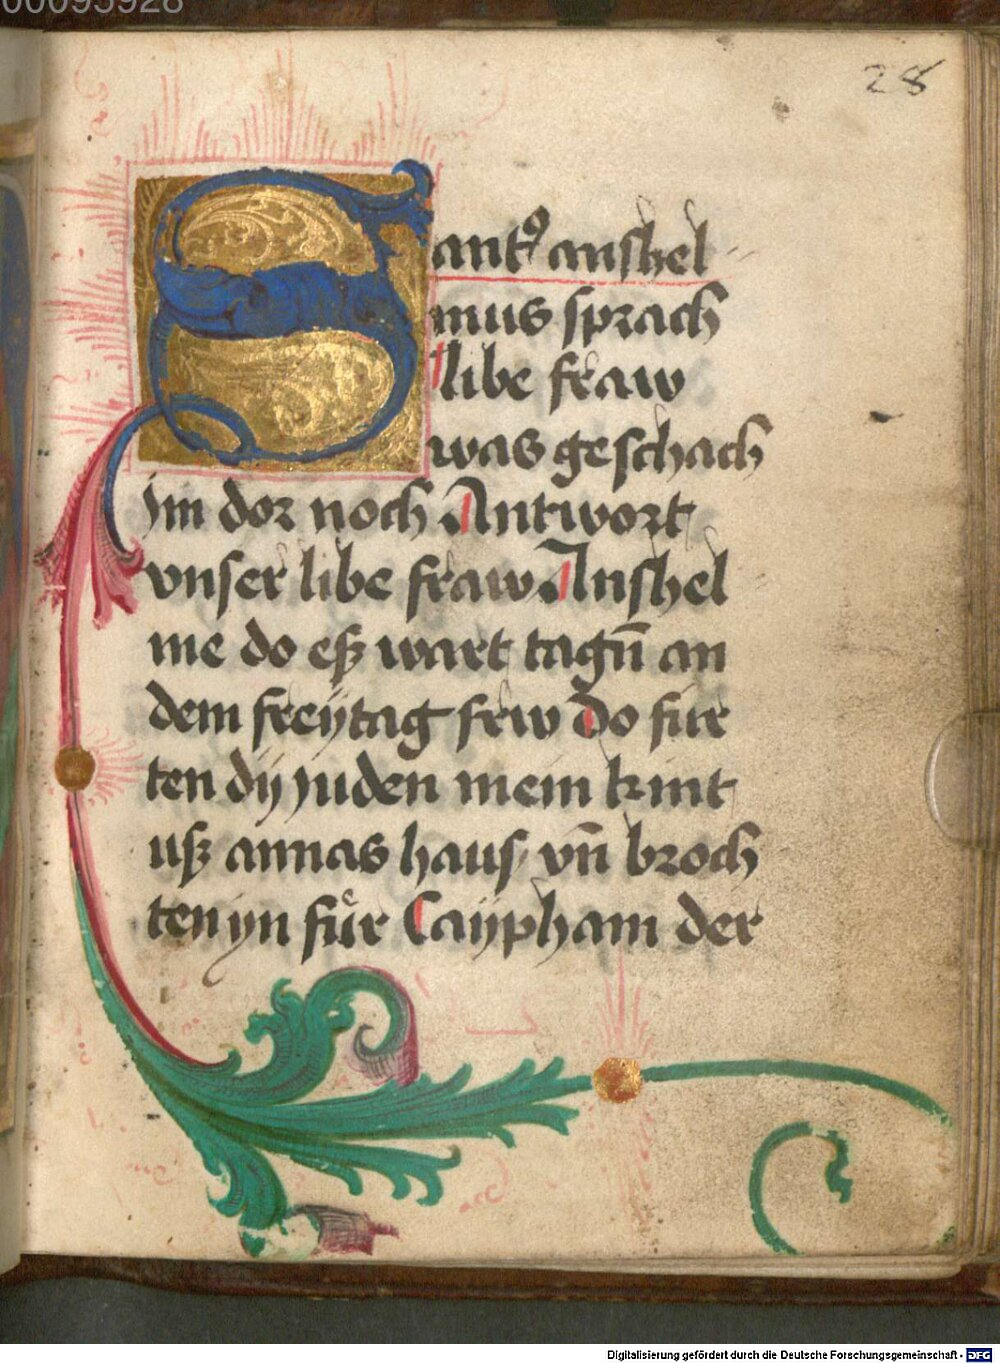 00095928
28
Santꝰ anshel
mus sprach
libe fraw
was geschach
jm dor noch Antwort
vnser libe fraw Anshel
me do eß wart tagn̄ an
dem freÿtag frw Do fur
ten dÿ juden mein kint
uß annas haus vn̄ broch
ten yn fuͤr Caÿpham der
Digitalisierung gefördert durch die Deutsche Forschungsgemeinschaft - DFG